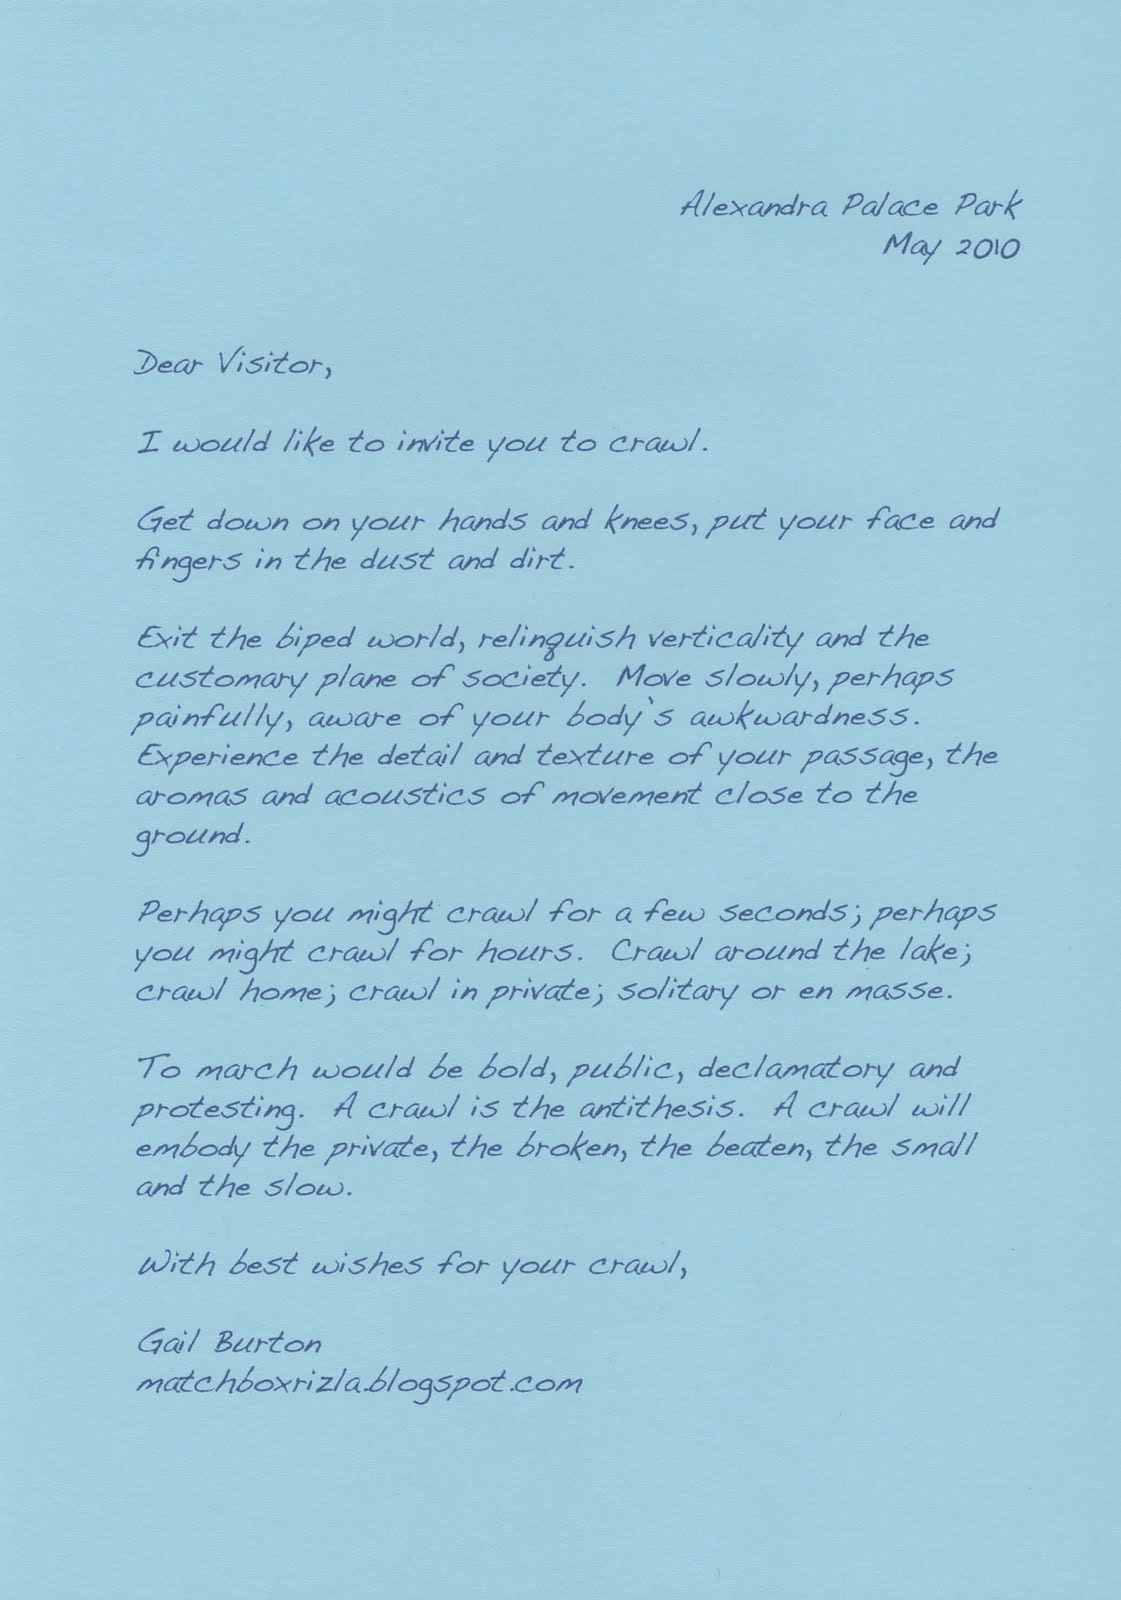 Alexandra Palace Park
May 2010
Dear Visitor,
I would like to invite you to crawl.
Get down on your hands and knees, put your face and
fingers in the dust and dirt.
Exit the biped world, relinquish verticality and the
customary plane of society. Move slowly, perhaps
painfully, aware of your body's awkwardness.
Experience the detail and texture of your passage, the
aromas and acoustics of movement close to the
ground.
Perhaps you might crawl for a few seconds; perhaps
you might crawl for hours. Crawl around the lake;
crawl home; crawl in private; solitary or en masse.
To march would be bold, public, declamatory and
protesting. A crawl is the antithesis. A crawl will
embody the private, the broken, the beaten, the small
and the slow.
With best wishes for your crawl,
Gail Burton
matchboxrizla.blogspot.com